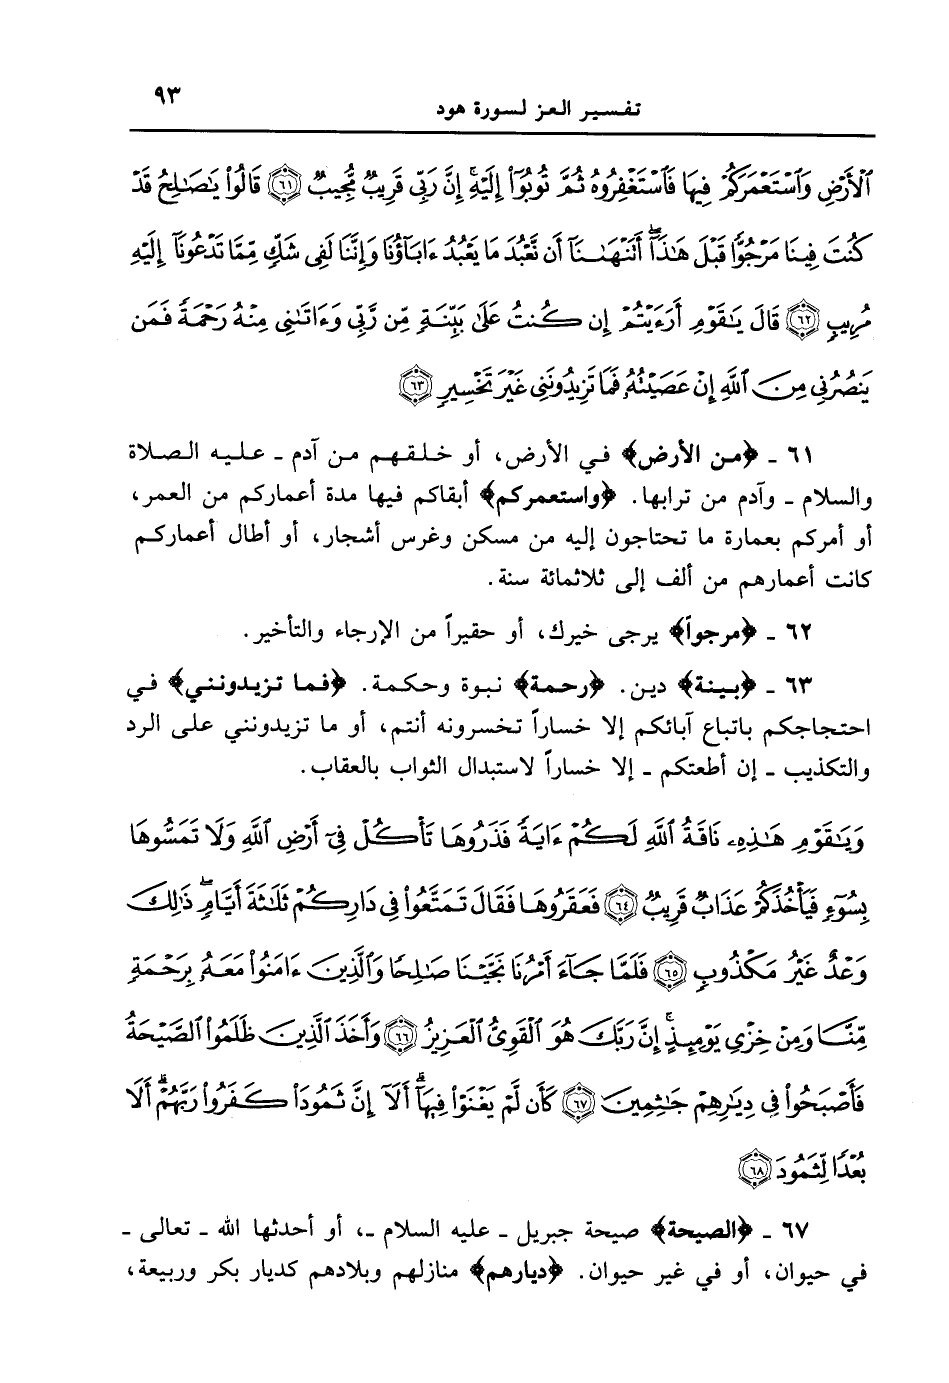 تفسير العز لسورة هود ٩٣
ٱلْأَرْضِ وَٱسْتَعْمَرَكُمْ فِيهَا فَٱسْتَغْفِرُوهُ ثُمَّ تُوبُوٓا۟ إِلَيْهِ ۚ إِنَّ رَبِّى قَرِيبٌ مُّجِيبٌ ﴿٦١﴾ قَالُوا۟ يَـٰصَـٰلِحُ قَدْ
كُنتَ فِينَا مَرْجُوًّا قَبْلَ هَـٰذَآ ۖ أَتَنْهَىٰنَآ أَن نَّعْبُدَ مَا يَعْبُدُ ءَابَآؤُنَا وَإِنَّنَا لَفِى شَكٍّ مِّمَّا تَدْعُونَآ إِلَيْهِ
مُرِيبٍ ﴿٦٢﴾ قَالَ يَـٰقَوْمِ أَرَءَيْتُمْ إِن كُنتُ عَلَىٰ بَيِّنَةٍ مِّن رَّبِّى وَءَاتَىٰنِى مِنْهُ رَحْمَةً فَمَن
يَنصُرُنِى مِنَ ٱللَّهِ إِنْ عَصَيْتُهُۥ فَمَا تَزِيدُونَنِى غَيْرَ تَخْسِيرٍ ﴿٦٣﴾
٦١ ـ ﴿من الأرض﴾ في الأرض، أو خلقهم من آدم ـ عليه الصلاة
والسلام ـ وآدم من ترابها. ﴿واستعمركم﴾ أبقاكم فيها مدة أعماركم من العمر،
أو أمركم بعمارة ما تحتاجون إليه من مسكن وغرس أشجار، أو أطال أعماركم
كانت أعمارهم من ألف إلى ثلاثمائة سنة.
٦٢ ـ ﴿مرجواً﴾ يرجى خيرك، أو حقيراً من الإرجاء والتأخير.
٦٣ ـ ﴿بينة﴾ دين. ﴿رحمة﴾ نبوة وحكمة. ﴿فما تزيدونني﴾ في
احتجاجكم باتباع آبائكم إلا خساراً تخسرونه أنتم، أو ما تزيدونني على الرد
والتكذيب ـ إن أطعتكم ـ إلا خساراً لاستبدال الثواب بالعقاب.
وَيَـٰقَوْمِ هَـٰذِهِۦ نَاقَةُ ٱللَّهِ لَكُمْ ءَايَةً فَذَرُوهَا تَأْكُلْ فِىٓ أَرْضِ ٱللَّهِ وَلَا تَمَسُّوهَا
بِسُوٓءٍ فَيَأْخُذَكُمْ عَذَابٌ قَرِيبٌ ﴿٦٤﴾ فَعَقَرُوهَا فَقَالَ تَمَتَّعُوا۟ فِى دَارِكُمْ ثَلَـٰثَةَ أَيَّامٍ ۖ ذَٰلِكَ
وَعْدٌ غَيْرُ مَكْذُوبٍ ﴿٦٥﴾ فَلَمَّا جَآءَ أَمْرُنَا نَجَّيْنَا صَـٰلِحًا وَٱلَّذِينَ ءَامَنُوا۟ مَعَهُۥ بِرَحْمَةٍ
مِّنَّا وَمِنْ خِزْىِ يَوْمِئِذٍ ۗ إِنَّ رَبَّكَ هُوَ ٱلْقَوِىُّ ٱلْعَزِيزُ ﴿٦٦﴾ وَأَخَذَ ٱلَّذِينَ ظَلَمُوا۟ ٱلصَّيْحَةُ
فَأَصْبَحُوا۟ فِى دِيَـٰرِهِمْ جَـٰثِمِينَ ﴿٦٧﴾ كَأَن لَّمْ يَغْنَوْا۟ فِيهَآ ۗ أَلَآ إِنَّ ثَمُودَا۟ كَفَرُوا۟ رَبَّهُمْ ۗ أَلَا
بُعْدًا لِّثَمُودَ ﴿٦٨﴾
٦٧ ـ ﴿الصيحة﴾ صيحة جبريل ـ عليه السلام ـ، أو أحدثها الله ـ تعالى ـ
في حيوان، أو في غير حيوان. ﴿ديارهم﴾ منازلهم وبلادهم كديار بكر وربيعة،